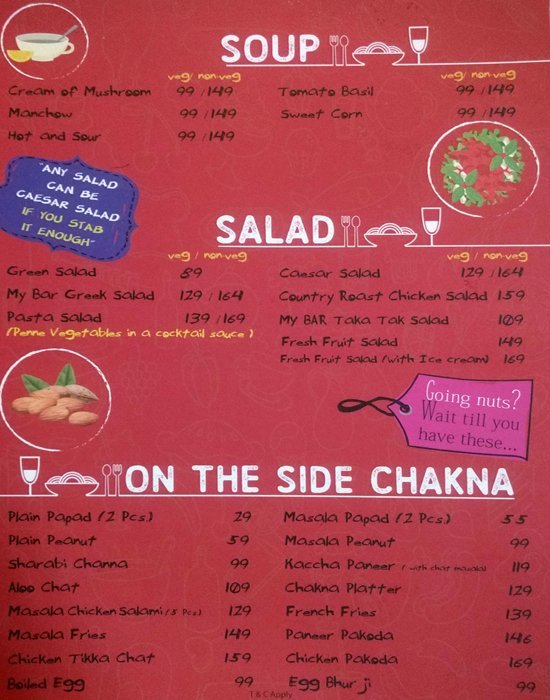 SOUP
veg/ non-veg
veg/ non-veg
Cream of Mushroom 99 /149
Tomato Basil 99 /149
Manchow 99 /149
Sweet Corn 99 /149
Hot and Sour 99 /149
"ANY SALAD
CAN BE
CAESAR SALAD
IF YOU STAB
IT ENOUGH"
SALAD
veg / non-veg
veg / non-veg
Green Salad 89
Caesar Salad 129 /164
My Bar Greek Salad 129 /164
Country Roast Chicken Salad 159
Pasta Salad 139 /169
(Penne Vegetables in a cocktail sauce )
My BAR Taka Tak Salad 109
Fresh Fruit Salad 149
Fresh Fruit Salad (with Ice cream) 169
Going nuts?
Wait till you
have these...
ON THE SIDE CHAKNA
Plain Papad (2 Pcs.) 29
Masala Papad (2 Pcs.) 55
Plain Peanut 59
Masala Peanut 99
Sharabi Channa 99
Kaccha Paneer ( with chat masala) 119
Aloo Chat 109
Chakna Platter 129
Masala Chicken Salami (5 Pcs) 129
French Fries 139
Masala Fries 149
Paneer Pakoda 146
Chicken Tikka Chat 159
Chicken Pakoda 169
Boiled Egg 99
Egg Bhur ji 99
T & C Apply